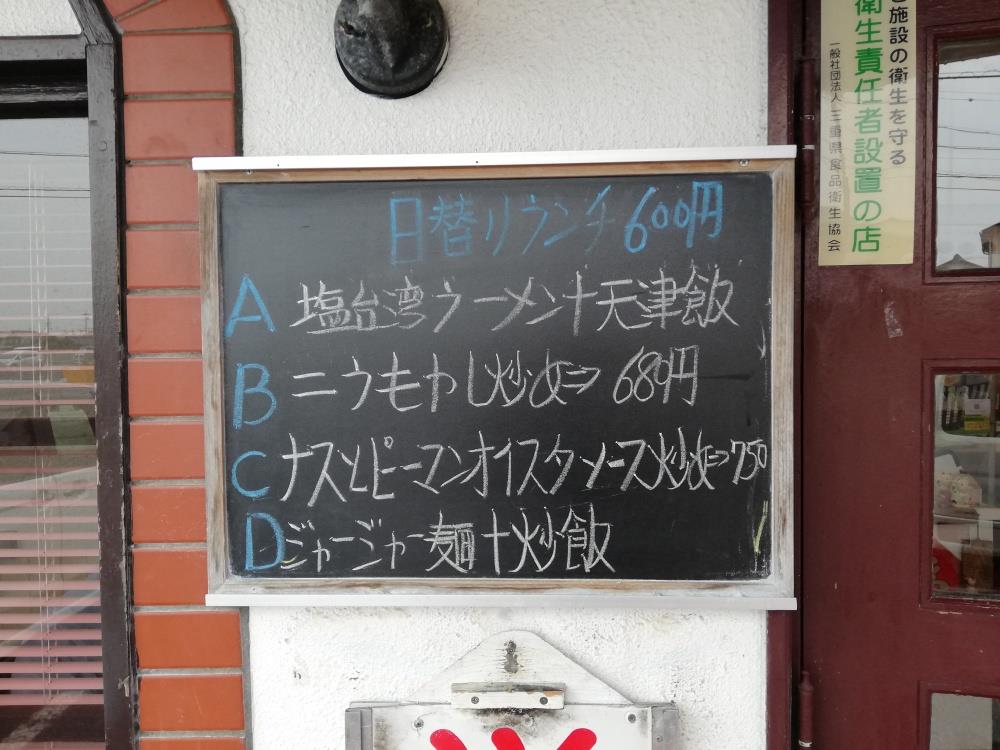 日替りランチ600円
A 塩台湾ラーメン+天津飯
B ニラもやし炒め⇒680円
C ナスとピーマンオイスターソース炒め⇒750
D ジャージャー麺+炒飯
施設の衛生を守る
衛生責任者設置の店
一般社団法人 三重県食品衛生協会